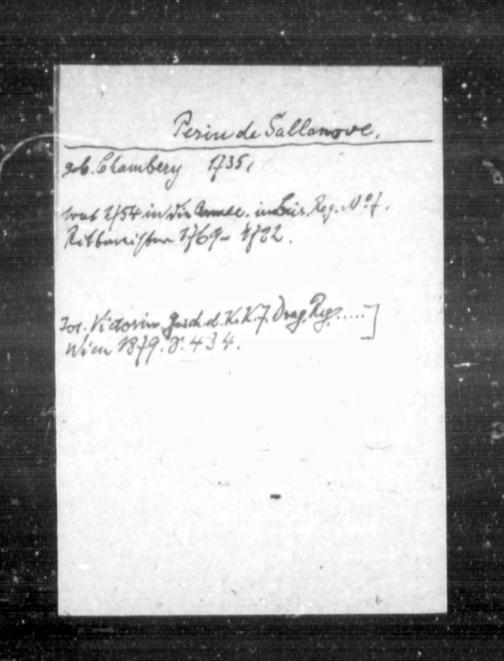 Perin de Sallanove.
geb. Chambery 1735,
trat 1754 in die Armee. in Kür. Reg. No 7.
Rittmeister 1769-1782.
Jos. Victorin Gesch. d. K. K. 7. Drag. Reg.....]
Wien 1879. S. 434.